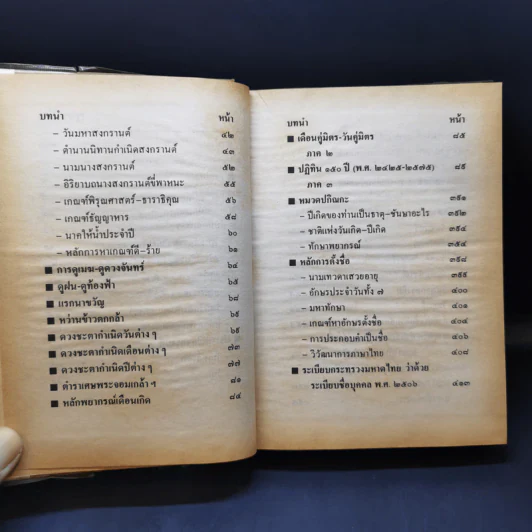 บทนำ หน้า
– วันมหาสงกรานต์ ๔๒
– ตำนานนิทานกำเนิดสงกรานต์ ๔๓
– นามนางสงกรานต์ ๕๒
– อิริยาบถนางสงกรานต์ขี่พาหนะ ๕๕
– เกณฑ์พิรุณศาสตร์-ธาราธิคุณ ๕๖
– เกณฑ์ธัญญาหาร ๕๘
– นาคให้น้ำประจำปี ๖๐
– หลักการหาเกณฑ์ดี-ร้าย ๖๑
■ การดูเมฆ-ดูดวงจันทร์ ๖๔
■ ดูฝน-ดูท้องฟ้า ๖๕
■ แรกนาขวัญ ๖๘
■ หว่านข้าวตกกล้า ๖๙
■ ดวงชะตากำเนิดวันต่าง ๆ ๖๙
■ ดวงชะตากำเนิดเดือนต่าง ๆ ๗๓
■ ดวงชะตากำเนิดปีต่าง ๆ ๗๗
■ ตำราเศษพระจอมเกล้า ฯ ๘๑
■ หลักพยากรณ์เดือนเกิด ๘๔
บทนำ หน้า
■ เดือนคู่มิตร-วันคู่มิตร ๘๕
ภาค ๒
■ ปฏิทิน ๑๕๐ ปี (พ.ศ. ๒๔๒๕-๒๕๗๕) ๘๙
ภาค ๓
■ หมวดปกิณกะ ๓๙๑
– ปีเกิดของท่านเป็นธาตุ-ชันษาอะไร ๓๙๒
– ชาติแห่งวันเกิด-ปีเกิด ๓๙๔
– ทักษาพยากรณ์ ๓๙๔
■ หลักการตั้งชื่อ ๓๙๘
– นามเทวดาเสวยอายุ ๓๙๙
– อักษรประจำวันทั้ง ๗ ๔๐๐
– มหาทักษา ๔๐๑
– เกณฑ์หาอักษรตั้งชื่อ ๔๐๔
– การประกอบคำเป็นชื่อ ๔๐๕
– วิวัฒนาการภาษาไทย ๔๐๘
■ ระเบียบกระทรวงมหาดไทย ว่าด้วย
ระเบียบชื่อบุคคล พ.ศ. ๒๕๐๖ ๔๑๓